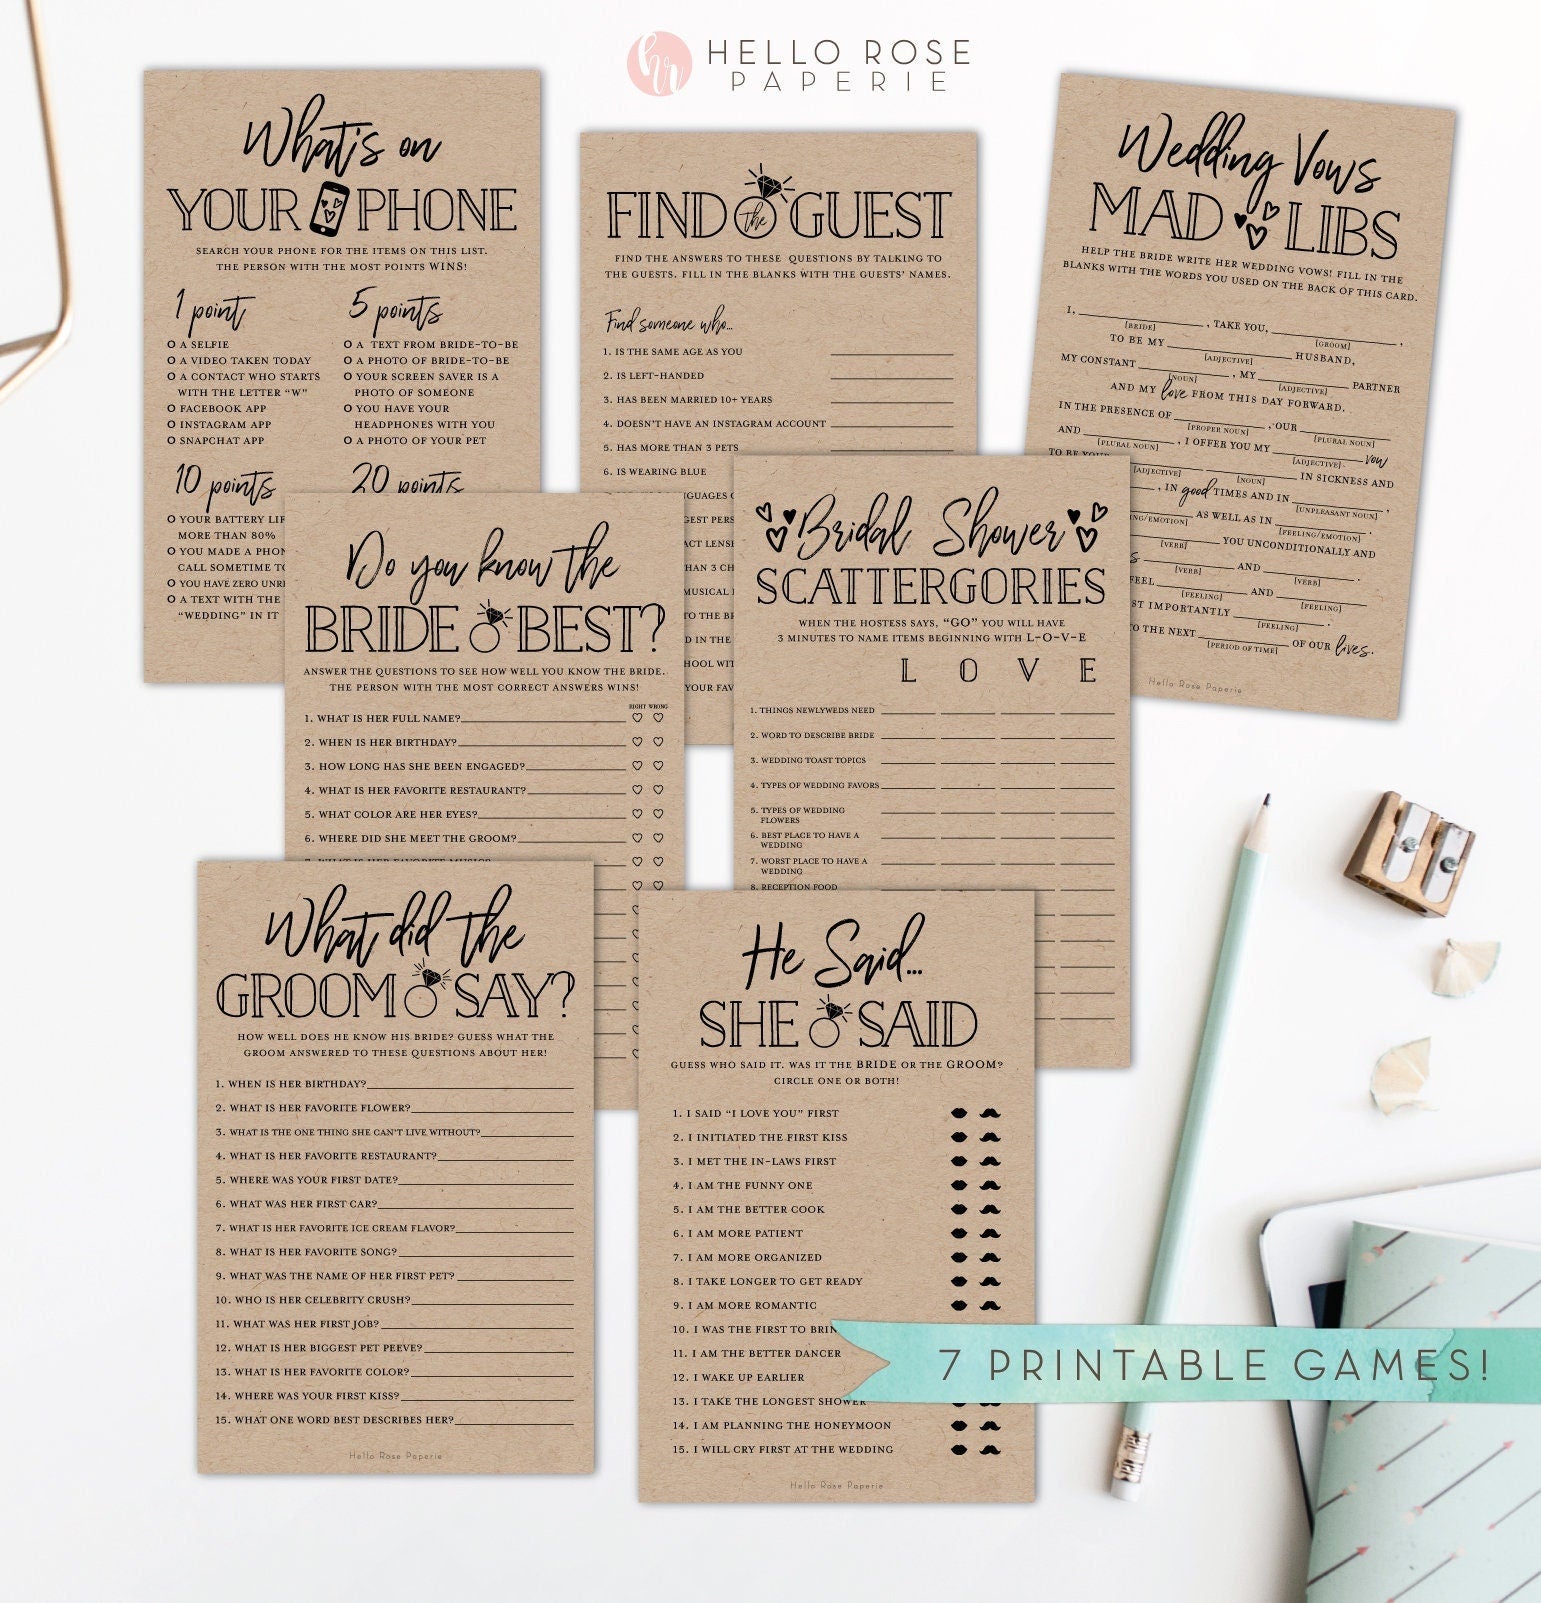 HELLO ROSE
PAPERIE
What's on
YOUR PHONE
SEARCH YOUR PHONE FOR THE ITEMS ON THIS LIST.
THE PERSON WITH THE MOST POINTS WINS!
1 point
O A SELFIE
O A VIDEO TAKEN TODAY
O A CONTACT WHO STARTS
WITH THE LETTER "W"
O FACEBOOK APP
O INSTAGRAM APP
O SNAPCHAT APP
5 points
O A TEXT FROM BRIDE-TO-BE
O A PHOTO OF BRIDE-TO-BE
O YOUR SCREEN SAVER IS A
PHOTO OF SOMEONE
O YOU HAVE YOUR
HEADPHONES WITH YOU
O A PHOTO OF YOUR PET
10 points
O YOUR BATTERY
MORE THAN 80%
O YOU MADE A
CALL SOMETIME
O YOU HAVE ZERO
O A TEXT WITH THE
"WEDDING" IN IT
20 points
FIND the GUEST
FIND THE ANSWERS TO THESE QUESTIONS BY TALKING TO
THE GUESTS. FILL IN THE BLANKS WITH THE GUESTS' NAMES.
Find someone who...
1. IS THE SAME AGE AS YOU
2. IS LEFT-HANDED
3. HAS BEEN MARRIED 10+ YEARS
4. DOESN'T HAVE AN INSTAGRAM ACCOUNT
5. HAS MORE THAN 3 PETS
6. IS WEARING BLUE
Wedding Vows
MAD LIBS
HELP THE BRIDE WRITE HER WEDDING VOWS! FILL IN THE
BLANKS WITH THE WORDS YOU USED ON THE BACK OF THIS CARD.
I, , TAKE YOU, ,
[BRIDE] [GROOM]
TO BE MY HUSBAND,
[ADJECTIVE]
MY CONSTANT , MY PARTNER
[NOUN] [ADJECTIVE]
AND MY love FROM THIS DAY FORWARD.
IN THE PRESENCE OF , OUR
[PROPER NOUN] [PLURAL NOUN]
AND , I OFFER YOU MY vow
[PLURAL NOUN] [ADJECTIVE]
TO BE YOUR IN SICKNESS AND
[ADJECTIVE] [NOUN]
, IN good TIMES AND IN ,
[UNPLEASANT NOUN]
AS WELL AS IN
[FEELING/EMOTION]
YOU UNCONDITIONALLY AND
[VERB]
AND
[VERB] [VERB]
FEEL AND
[FEELING] [FEELING]
IMPORTANTLY .
[FEELING]
TO THE NEXT OF OUR lives.
[PERIOD OF TIME]
Hello Rose Paperie
Do you know the
BRIDE BEST?
ANSWER THE QUESTIONS TO SEE HOW WELL YOU KNOW THE BRIDE.
THE PERSON WITH THE MOST CORRECT ANSWERS WINS!
RIGHT WRONG
1. WHAT IS HER FULL NAME?
2. WHEN IS HER BIRTHDAY?
3. HOW LONG HAS SHE BEEN ENGAGED?
4. WHAT IS HER FAVORITE RESTAURANT?
5. WHAT COLOR ARE HER EYES?
6. WHERE DID SHE MEET THE GROOM?
7. WHAT IS HER FAVORITE MUSIC?
Bridal Shower
SCATTERGORIES
WHEN THE HOSTESS SAYS, "GO" YOU WILL HAVE
3 MINUTES TO NAME ITEMS BEGINNING WITH L-O-V-E
L O V E
1. THINGS NEWLYWEDS NEED
2. WORD TO DESCRIBE BRIDE
3. WEDDING TOAST TOPICS
4. TYPES OF WEDDING FAVORS
5. TYPES OF WEDDING
FLOWERS
6. BEST PLACE TO HAVE A
WEDDING
7. WORST PLACE TO HAVE A
WEDDING
8. RECEPTION FOOD
What did the
GROOM SAY?
HOW WELL DOES HE KNOW HIS BRIDE? GUESS WHAT THE
GROOM ANSWERED TO THESE QUESTIONS ABOUT HER!
1. WHEN IS HER BIRTHDAY?
2. WHAT IS HER FAVORITE FLOWER?
3. WHAT IS THE ONE THING SHE CAN'T LIVE WITHOUT?
4. WHAT IS HER FAVORITE RESTAURANT?
5. WHERE WAS YOUR FIRST DATE?
6. WHAT WAS HER FIRST CAR?
7. WHAT IS HER FAVORITE ICE CREAM FLAVOR?
8. WHAT IS HER FAVORITE SONG?
9. WHAT WAS THE NAME OF HER FIRST PET?
10. WHO IS HER CELEBRITY CRUSH?
11. WHAT WAS HER FIRST JOB?
12. WHAT IS HER BIGGEST PET PEEVE?
13. WHAT IS HER FAVORITE COLOR?
14. WHERE WAS YOUR FIRST KISS?
15. WHAT ONE WORD BEST DESCRIBES HER?
Hello Rose Paperie
He Said...
SHE SAID
GUESS WHO SAID IT. WAS IT THE BRIDE OR THE GROOM?
CIRCLE ONE OR BOTH!
1. I SAID "I LOVE YOU" FIRST
2. I INITIATED THE FIRST KISS
3. I MET THE IN-LAWS FIRST
4. I AM THE FUNNY ONE
5. I AM THE BETTER COOK
6. I AM MORE PATIENT
7. I AM MORE ORGANIZED
8. I TAKE LONGER TO GET READY
9. I AM MORE ROMANTIC
10. I WAS THE FIRST TO BRIN
11. I AM THE BETTER DANCER
12. I WAKE UP EARLIER
13. I TAKE THE LONGEST SHOWER
14. I AM PLANNING THE HONEYMOON
15. I WILL CRY FIRST AT THE WEDDING
Hello Rose Paperie
7 PRINTABLE GAMES!